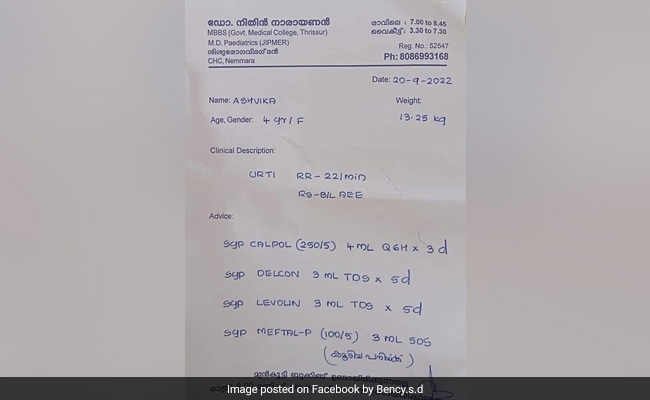 ഡോ. നിതിൻ നാരായണൻ
MBBS (Govt. Medical College, Thrissur)
M.D. Paediatrics (JIPMER)
ശിശുരോഗവിദഗ്ദൻ
CHC, Nemmara
രാവിലെ : 7.00 to 8.45
വൈകീട്ട് : 3.30 to 7.30
Reg. No.: 52547
Ph: 8086993168
Date: 20-9-2022
Name: ASHVIKA
Weight:
Age, Gender: 4 yr / F
13.25 kg
Clinical Description:
URTI RR - 22/min
RS - B/L AEE
Advice:
syp CALPOL (250/5) 4 mL Q6H x 3 d
syp DELCON 3 mL TDS x 5d
syp LEVOLIN 3 mL TDS x 5d
syp MEFTAL-P (100/5) 3 mL SOS
(കൂടിയ പനിയ്ക്ക്)
Image posted on Facebook by Bency.s.d